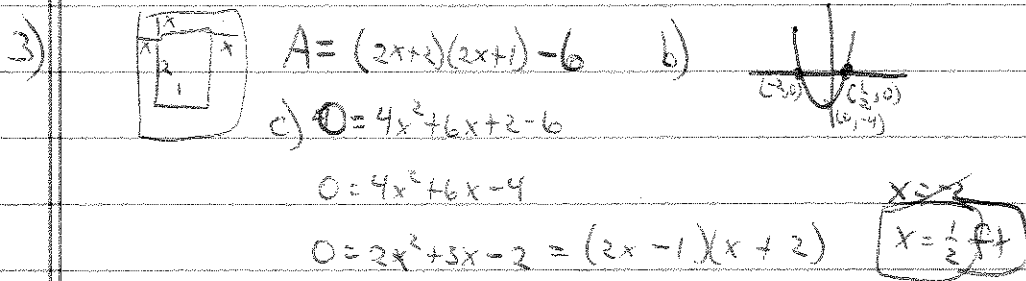 3) x x x 2 1 A = (2x+2)(2x+1) - 6 b) (-2,0) (1/2,0) (0,-4)
c) 0 = 4x²+6x+2-6
0 = 4x²+6x-4
x = -2
0 = 2x²+3x-2 = (2x-1)(x+2) x = 1/2 ft